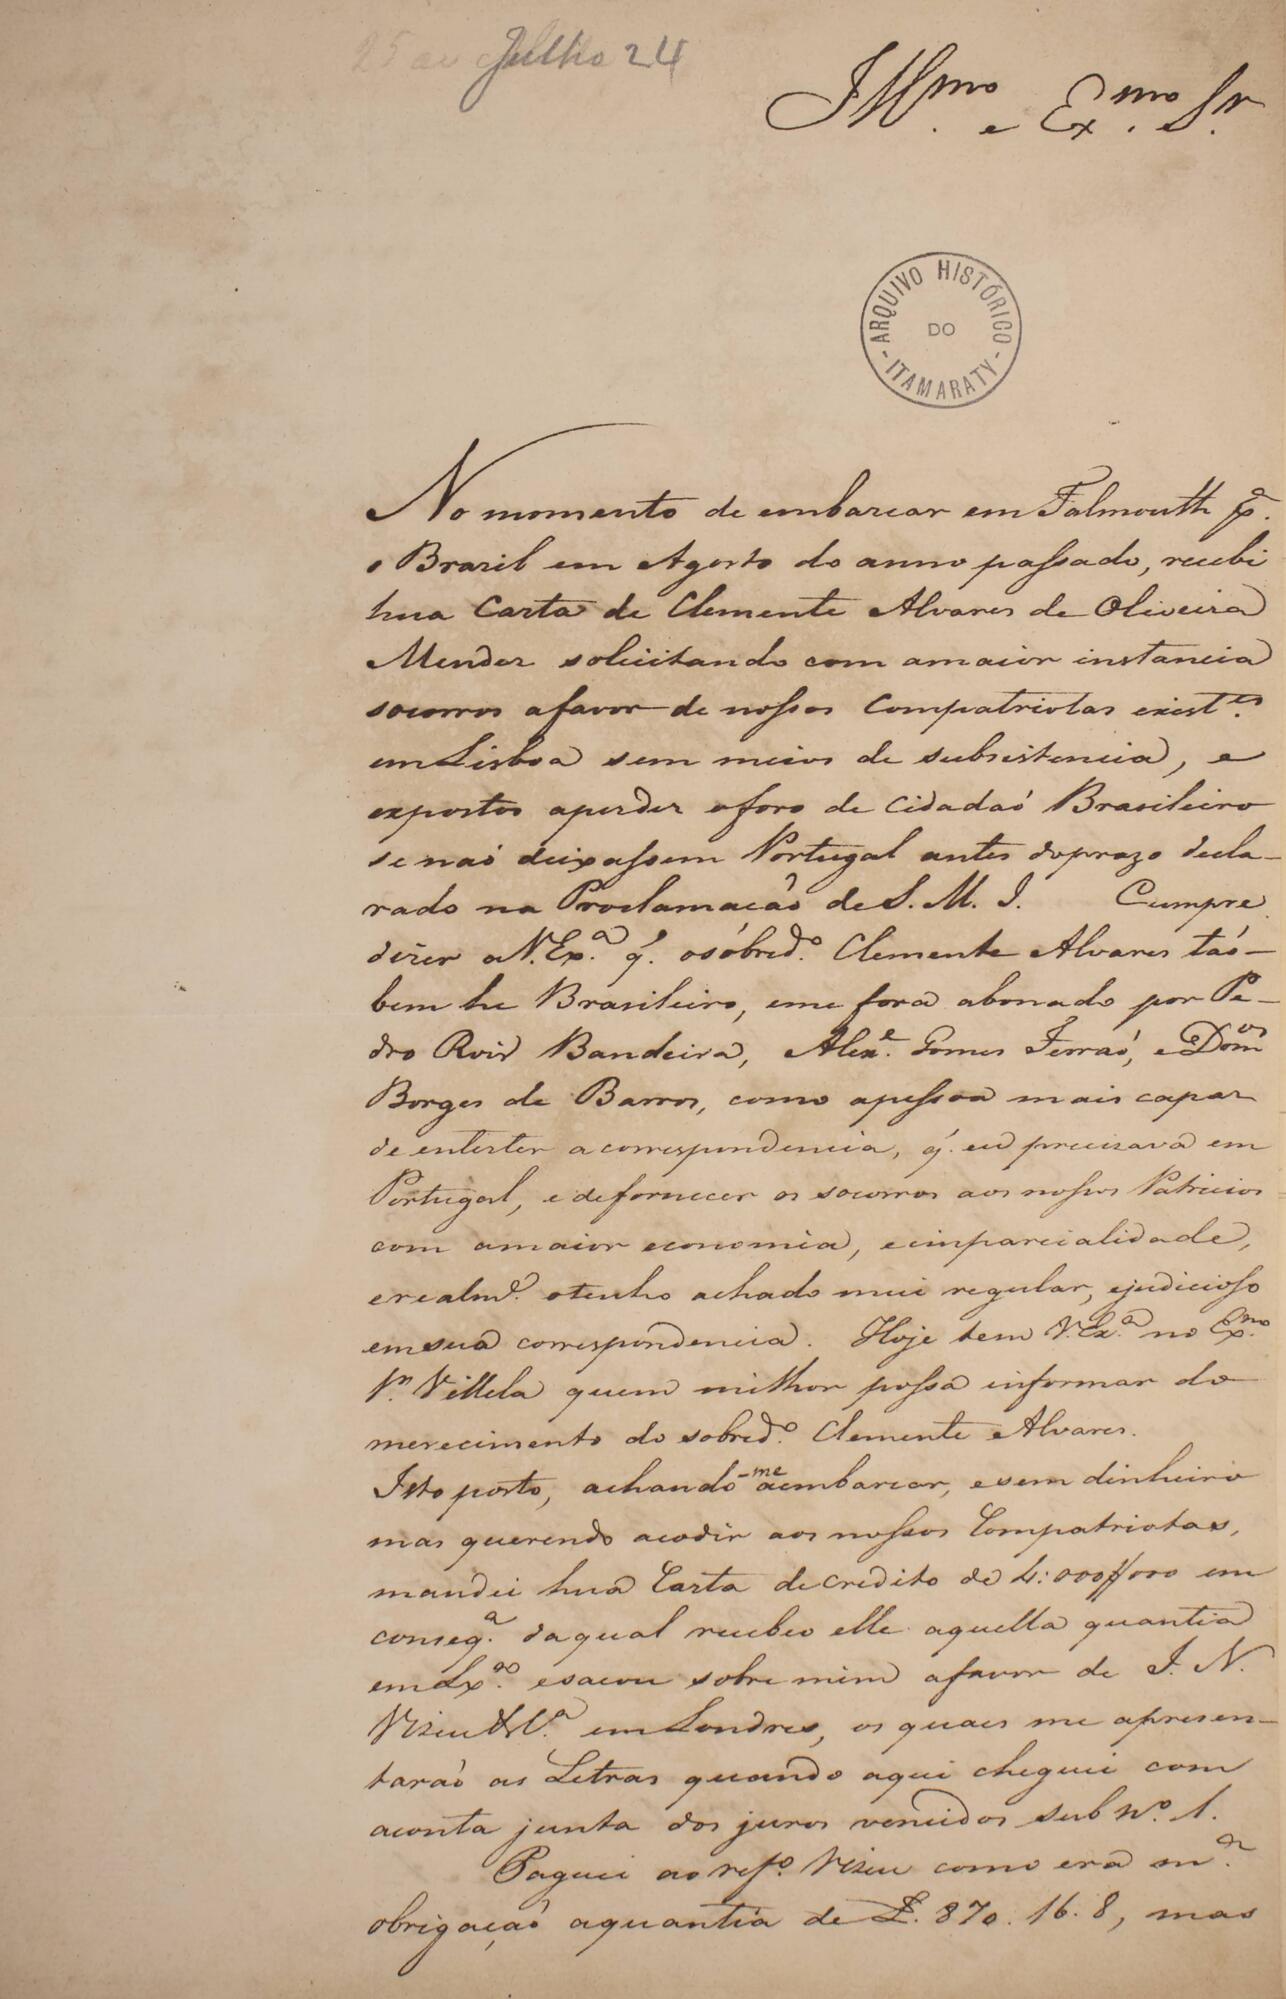 25 de Julho 24
Illmo. e Exmo. Sr.
ARQUIVO HISTÓRICO
DO
- ITAMARATY -
No momento de embarcar em Falmouth pª.
o Brazil em Agosto do anno passado, recebi
hua Carta de Clemente Alvares de Oliveira
Mendes solicitando com amaior instancia
socorros afavor de nossos Compatriotas existes.
em Lisboa sem meios de subsistencia, e
expostos aperder oforo de Cidadaõ Brasileiro
se naõ deixassem Portugal antes doprazo decla-
rado na Proclamacaõ de S. M. I. Cumpre
dizer a V. Exª. q̃. osóbredº. Clemente Alvares taõ-
bem he Brasileiro, eme fora abonado por Pe-
dro Roiz Bandeira, Alexe. Gomes Ferraõ, e Domos
Borges de Barros, como apessoa mais capaz
de enterter a correspondencia, q̃. eu precisava em
Portugal, e defornecer os socorros aos nossos Patricios
com amaior economia, eimparcialidade,
erealme. otenho achado mui regular, ejudicioso
emsua correspondencia. Hoje tem V. Exª. no Exmo.
Sr. Villela quem milhor possa informar do
merecimento do sobredº. Clemente Alvares.
Isto posto, achando-me aembarcar, esem dinheiro
mas querendo acodir aos nossos Compatriotas,
mandei hua Carta decredito de 4:000$000 em
conseqª. daqual recebeo elle aquella quantia
em Lxª. esacou sobre mim afavor de J. N.
Vizeu & Cª. em Londres, os quaes me apresen-
taraõ as Letras quando aqui cheguei com
aconta junta dos juros vencidos sub Nº. 1.
Paguei ao refº. Vizeu como era mª.
obrigaçaõ aquantia de £. 870. 16. 8, mas